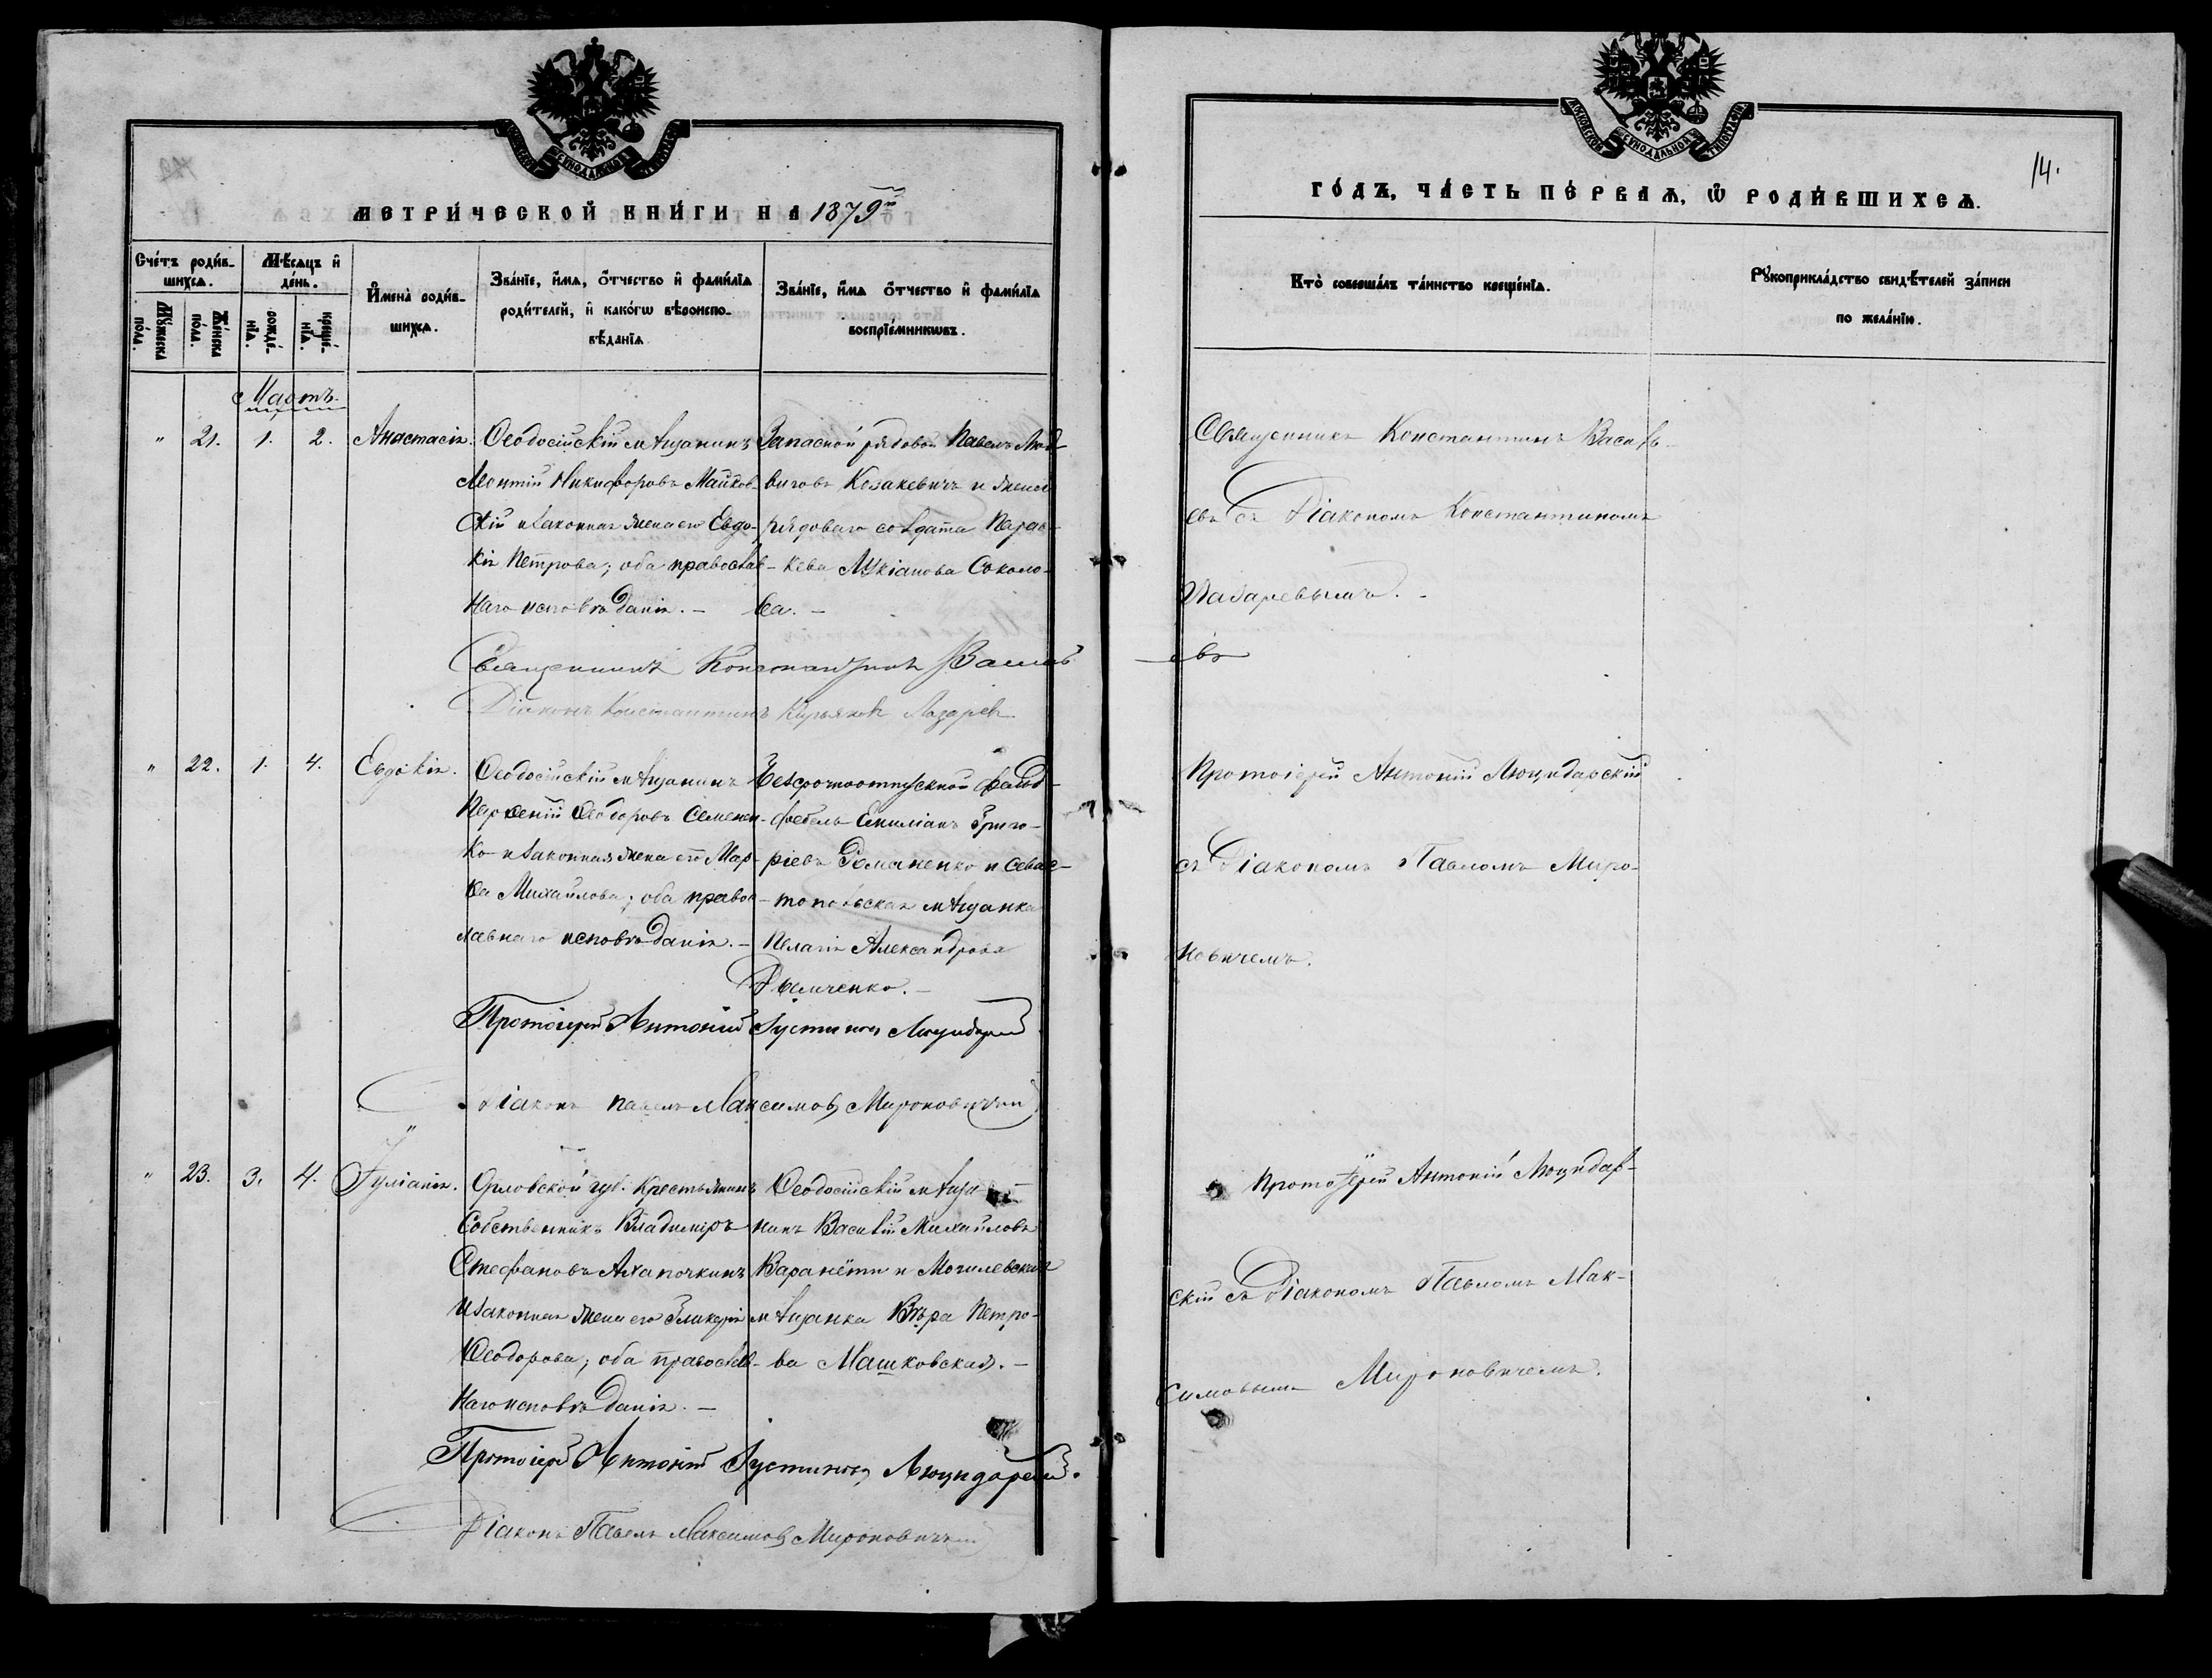 МЕТРИ́ЧЕСКОЙ КНИ́ГИ НА 1879й
ГО́ДЪ, ЧА́СТЬ ПЕ́РВАѦ, Ѡ РОДИ́ВШИХСѦ.
14.
Сче́тъ роди́в-
шихсѧ.
Мѣ́сѧцъ и҆
де́нь.
Мꙋ́жеска по́ла.
Же́нска по́ла.
рожде́нїѧ.
креще́нїѧ.
И҆мена̀ роди́в-
шихсѧ.
Зва́нїе, и҆́мѧ, ѻ҆́тчество и҆ фами́лїѧ
роди́телей, и҆ како́гѡ вѣроиспо-
вѣ́данїѧ
Зва́нїе, и҆́мѧ ѻ҆́тчество и҆ фами́лїѧ
воспрїе́мникѡвъ.
Кто̀ соверша́лъ та́инство креще́нїѧ.
Рꙋкоприкла́дство свидѣ́телей за́писи
по жела́нїю.
Мартъ.
" 21. 1. 2. Анастасія.
Ѳеодосійскій мѣщанинъ
Леонтій Никифоровъ Майков-
скій и законная жена его Евдо-
кія Петрова; оба православ-
наго исповѣданія. –
Запасной рядовой Павелъ Люд-
виговъ Козакевичъ и жена
рядоваго солдата Парас-
кева Лукіанова Соколо-
ва. –
Священникъ Константинъ Василь-
евъ съ Діакономъ Константиномъ
Лазаревымъ. -
Священникъ Константинъ Василь
евъ
Діаконъ Константинъ Кирьяковъ Лазаревъ
" 22. 1. 4. Евдокія.
Ѳеодосійскій мѣщанинъ
Парѳеній Ѳеодоровъ Семенен-
ко и законная жена его Мар-
ѳа Михайлова; оба правос-
лавнаго исповѣданія. –
Безсрочноотпускной фельд-
фебель Емиліанъ Григо-
ріевъ Романенко и Севас-
топольская мѣщанка
Пелагія Александрова
Дѣмченко. –
Протоіерей Антоній Люцидарскій
съ Діакономъ Павломъ Миро-
новичемъ.
Протоіерей Антоній Іустиновъ Люцидарскій
Діаконъ Павелъ Максимовъ Мироновичъ
" 23. 3. 4. Іуліанія.
Орловской губ. Крестьянинъ
Собственникъ Владиміръ
Стефановъ Ахапочкинъ
и законная жена его Гликерія
Ѳеодорова; оба православ-
наго исповѣданія. –
Ѳеодосійскій мѣща-
нинъ Василій Михайловъ
Варанёти и Могилевская
мѣщанка Вѣра Петро-
ва Машковская. –
Протоіерей Антоній Люцидар-
скій съ Діакономъ Павломъ Мак-
симовымъ Мироновичемъ.
Протоіерей Антоній Іустиновъ Люцидарскій.
Діаконъ Павелъ Максимовъ Мироновичъ